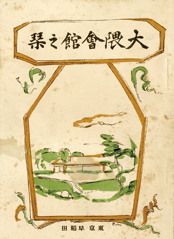 大隈會館之栞
東京早稲田